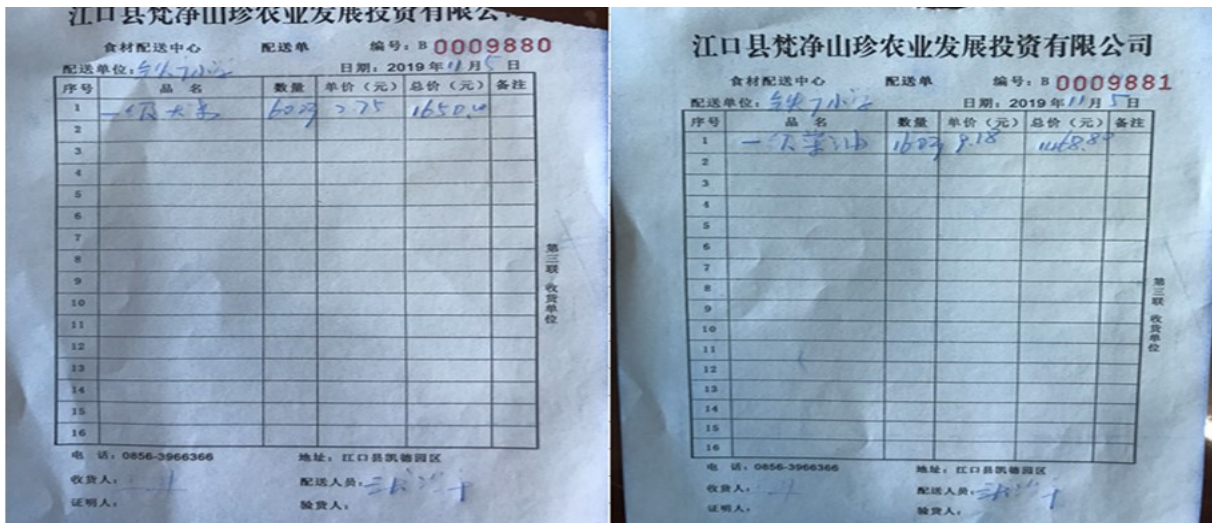 江口县梵净山珍农业发展投资有限公司
食材配送中心 配送单 编号:B 0009880
配送单位: 日期:2019年11月5日
序号 品名 数量 单价(元) 总价(元) 备注
1 一级大米 2.75 1650.00
2
3
4
5
6
7
8
9
10
11
12
13
14
15
16
第三联 收货单位
电话:0856-3966366 地址:江口县凯德园区
收货人: 配送人员:
证明人: 验货人:
江口县梵净山珍农业发展投资有限公司
食材配送中心 配送单 编号:B 0009881
配送单位: 日期:2019年11月5日
序号 品名 数量 单价(元) 总价(元) 备注
1 一级菜油 9.18 1468.80
2
3
4
5
6
7
8
9
10
11
12
13
14
15
16
第三联 收货单位
电话:0856-3966366 地址:江口县凯德园区
收货人: 配送人员:
证明人: 验货人: